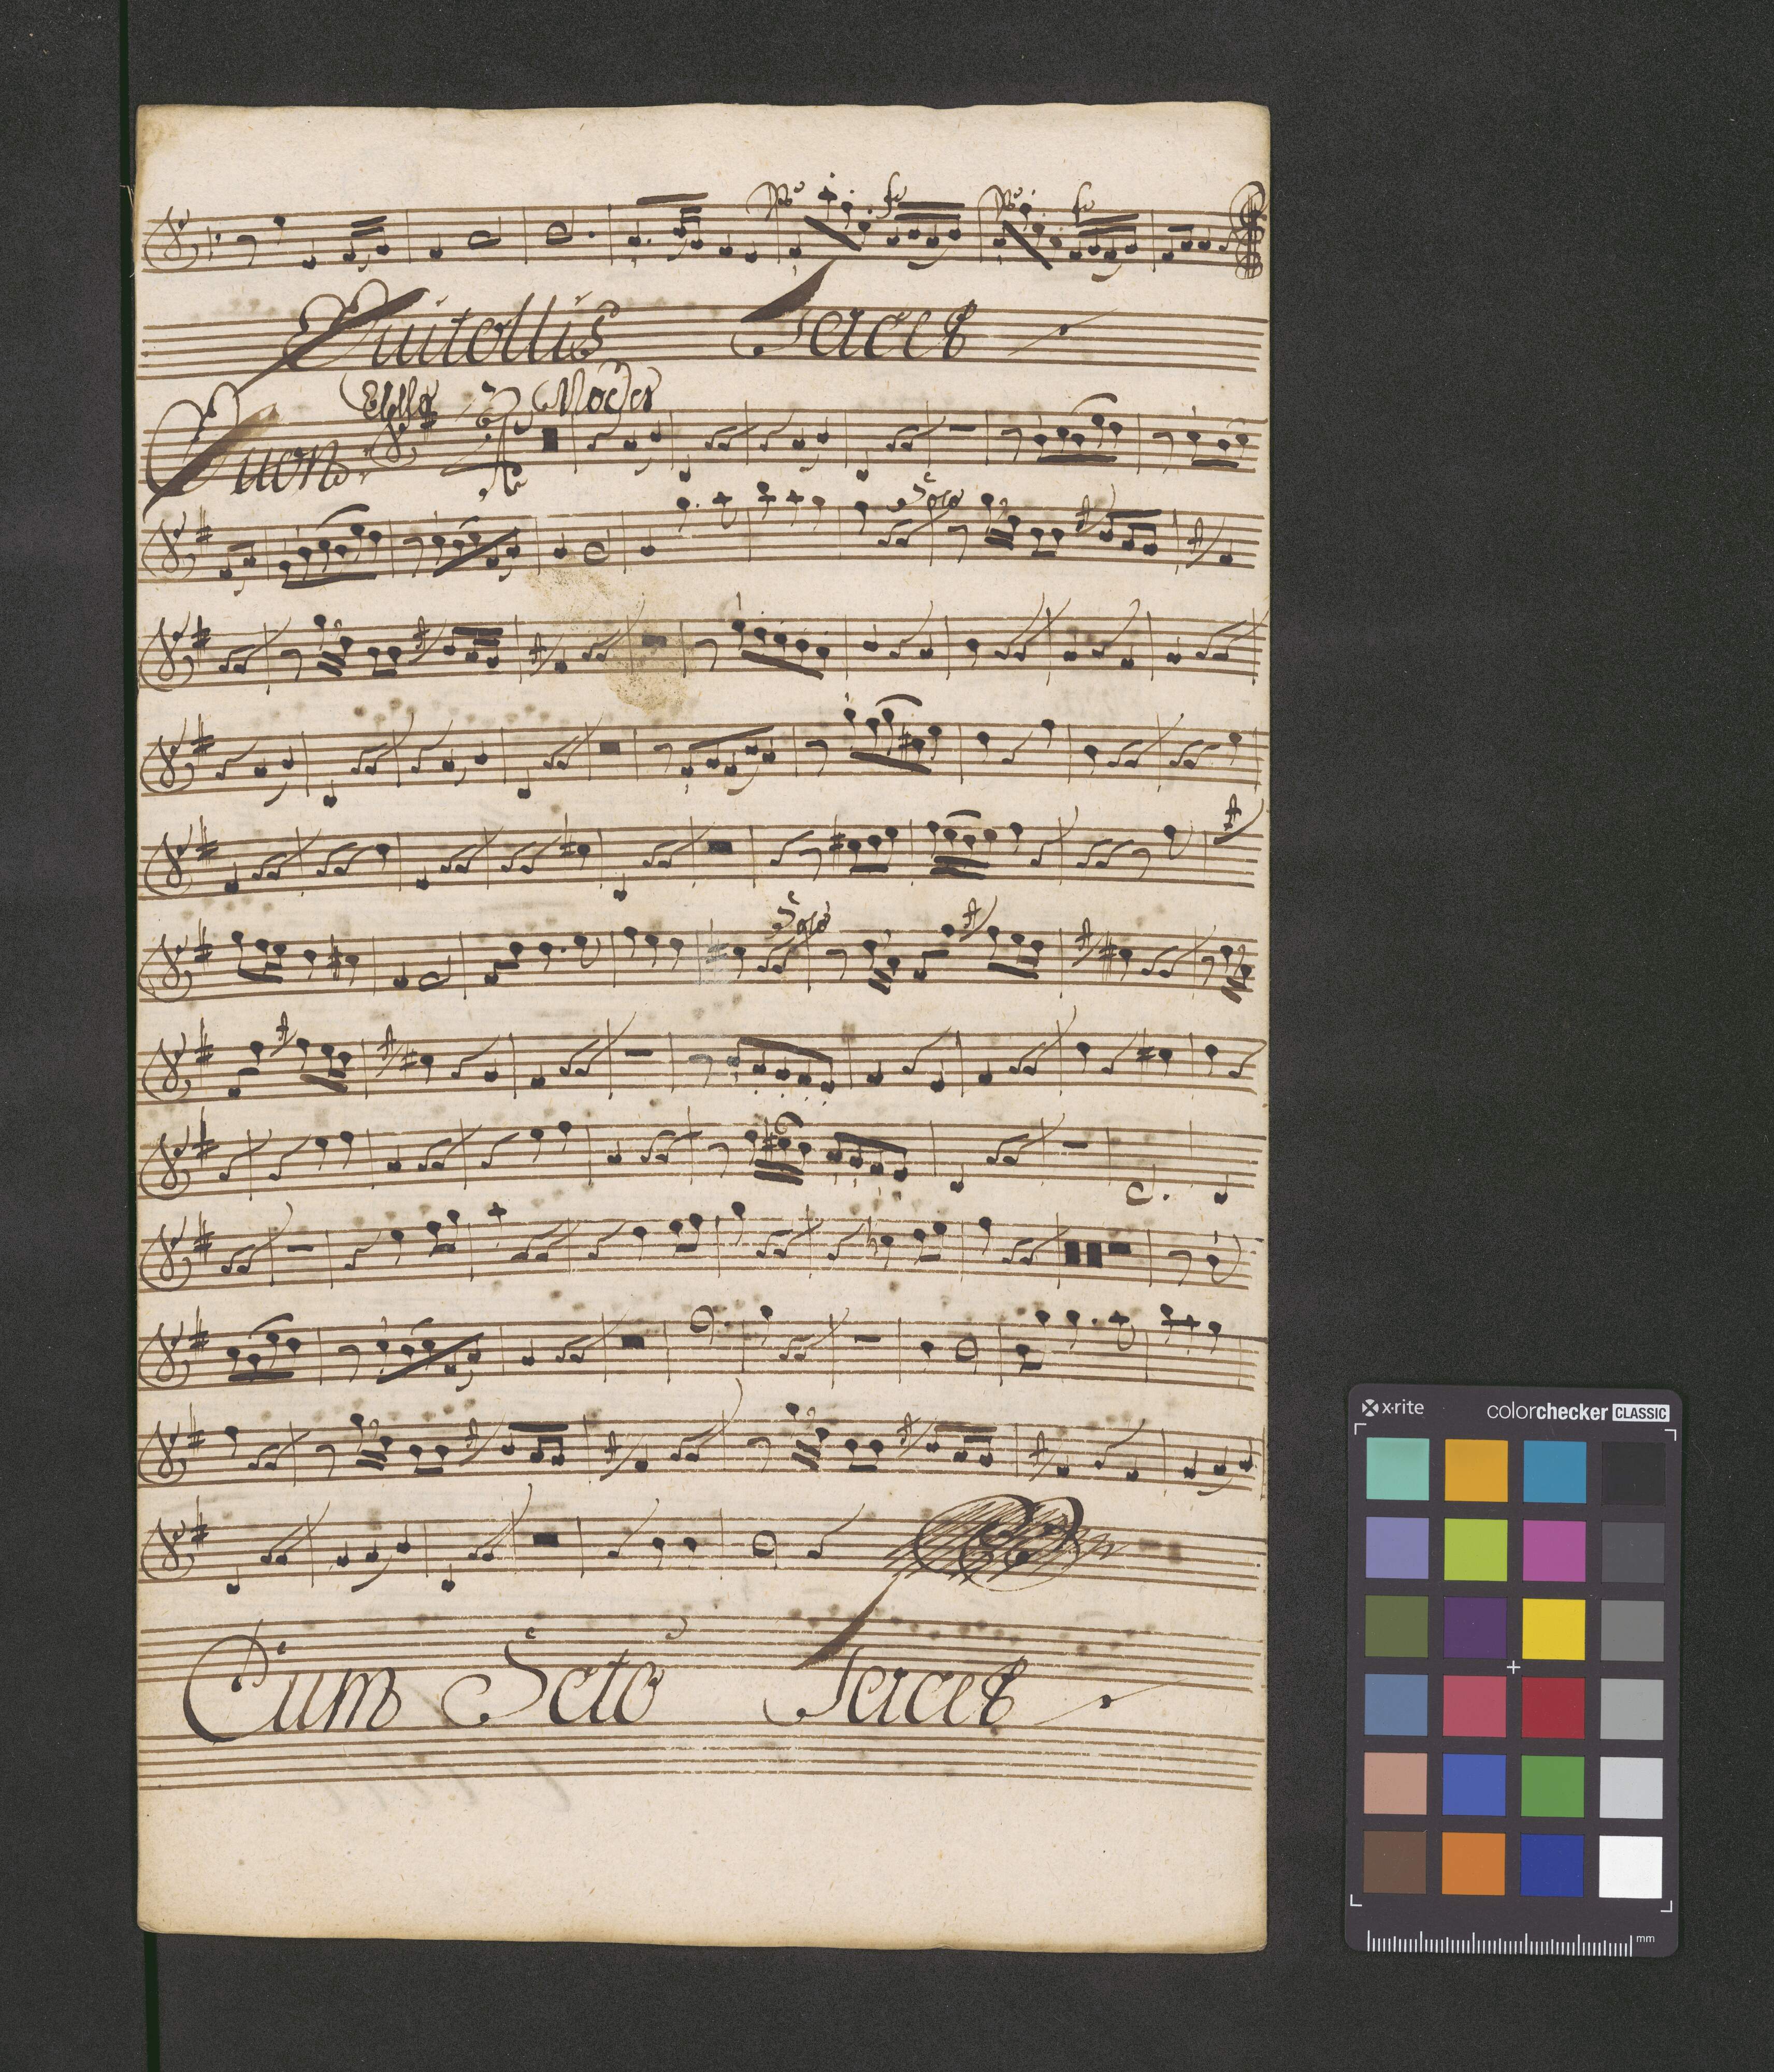 Po fo Po fo
Quitollis Tacet
Quon: Allo Moder
Solo
Solo
Cum Scto Tacet
x·rite colorchecker CLASSIC
mm